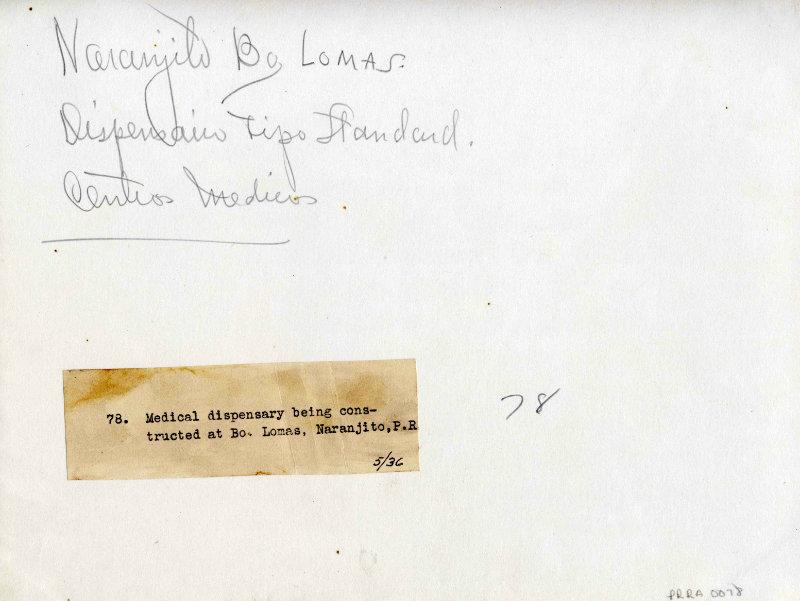 Naranjito Bo LOMAS.
Dispensario Tipo Standard.
Centros Medicos
78. Medical dispensary being cons-
tructed at Bo. Lomas, Naranjito,P.R
5/36
78
PRRA 0078